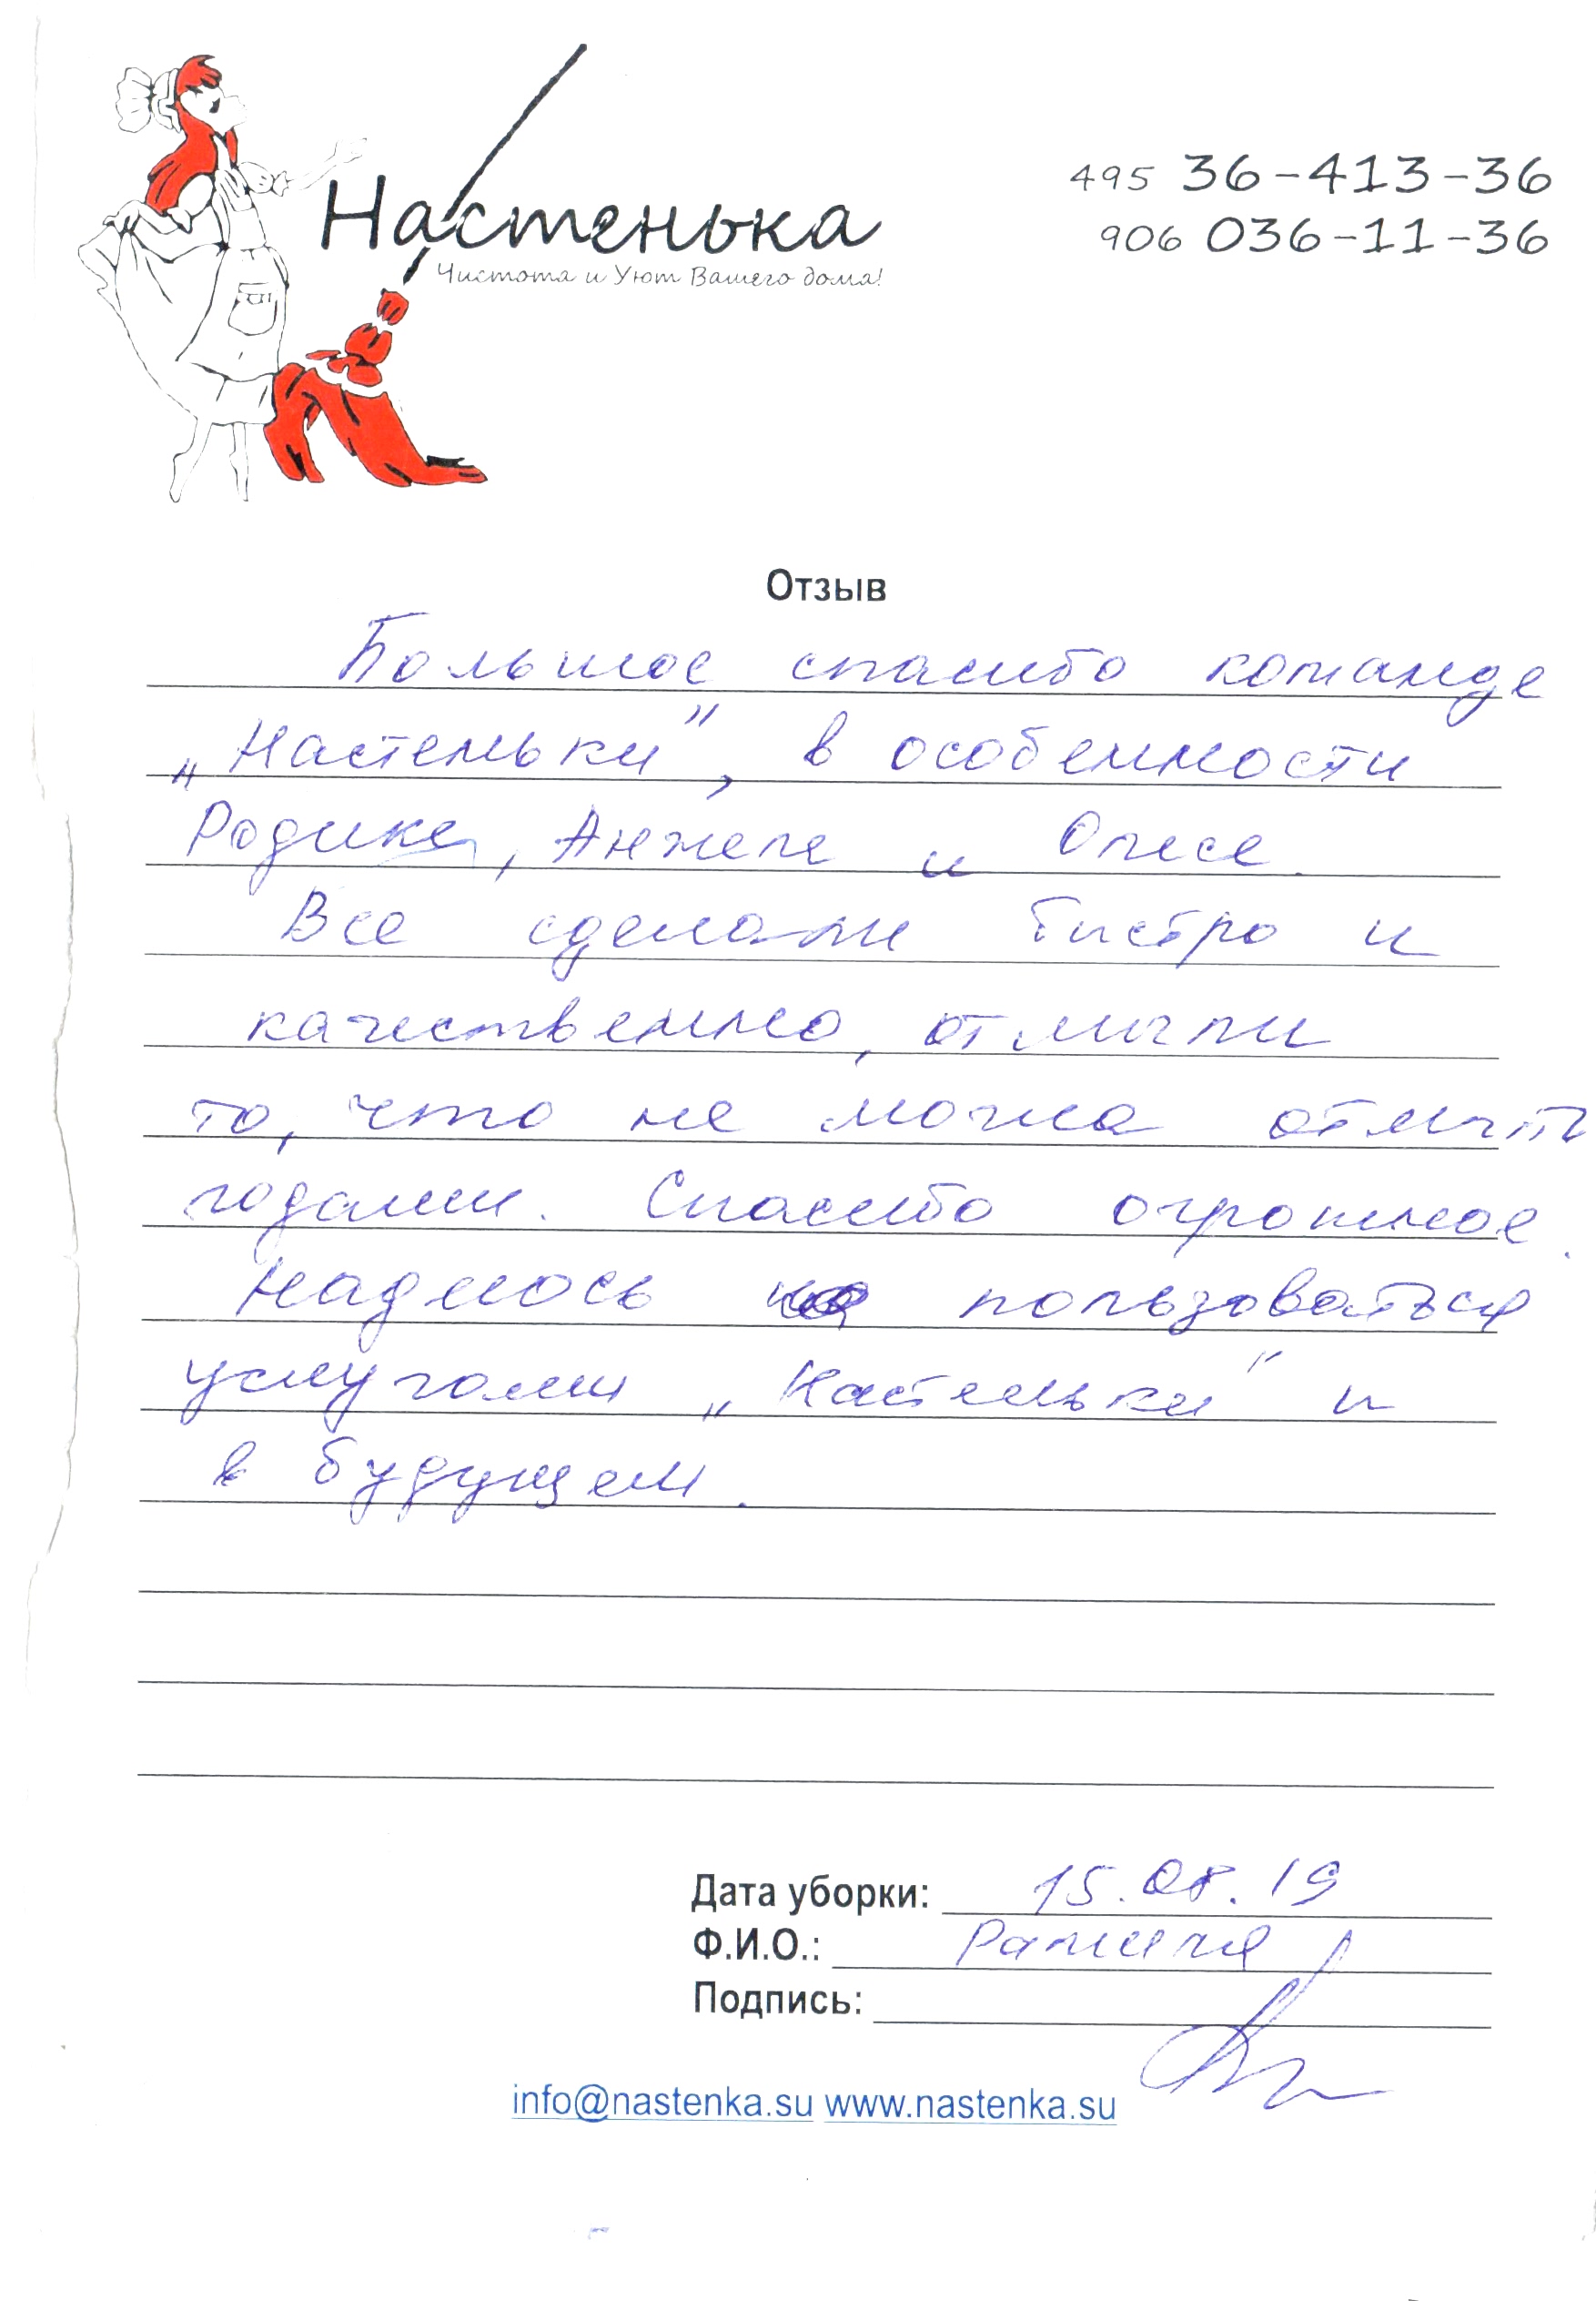 Настенька
Чистота и Уют Вашего дома!
495 36-413-36
906 036-11-36
Отзыв
Большое спасибо команде
„Настеньки", в особенности
Родике, Анжеле и Олесе.
Все сделали быстро и
качественно, отмыли
то, что не могла отмыть
годами. Спасибо огромное.
Надеюсь пользоваться
услугами „Настеньки" и
в будущем.
Дата уборки: 15.08.19
Ф.И.О.:
Подпись:
info@nastenka.su www.nastenka.su